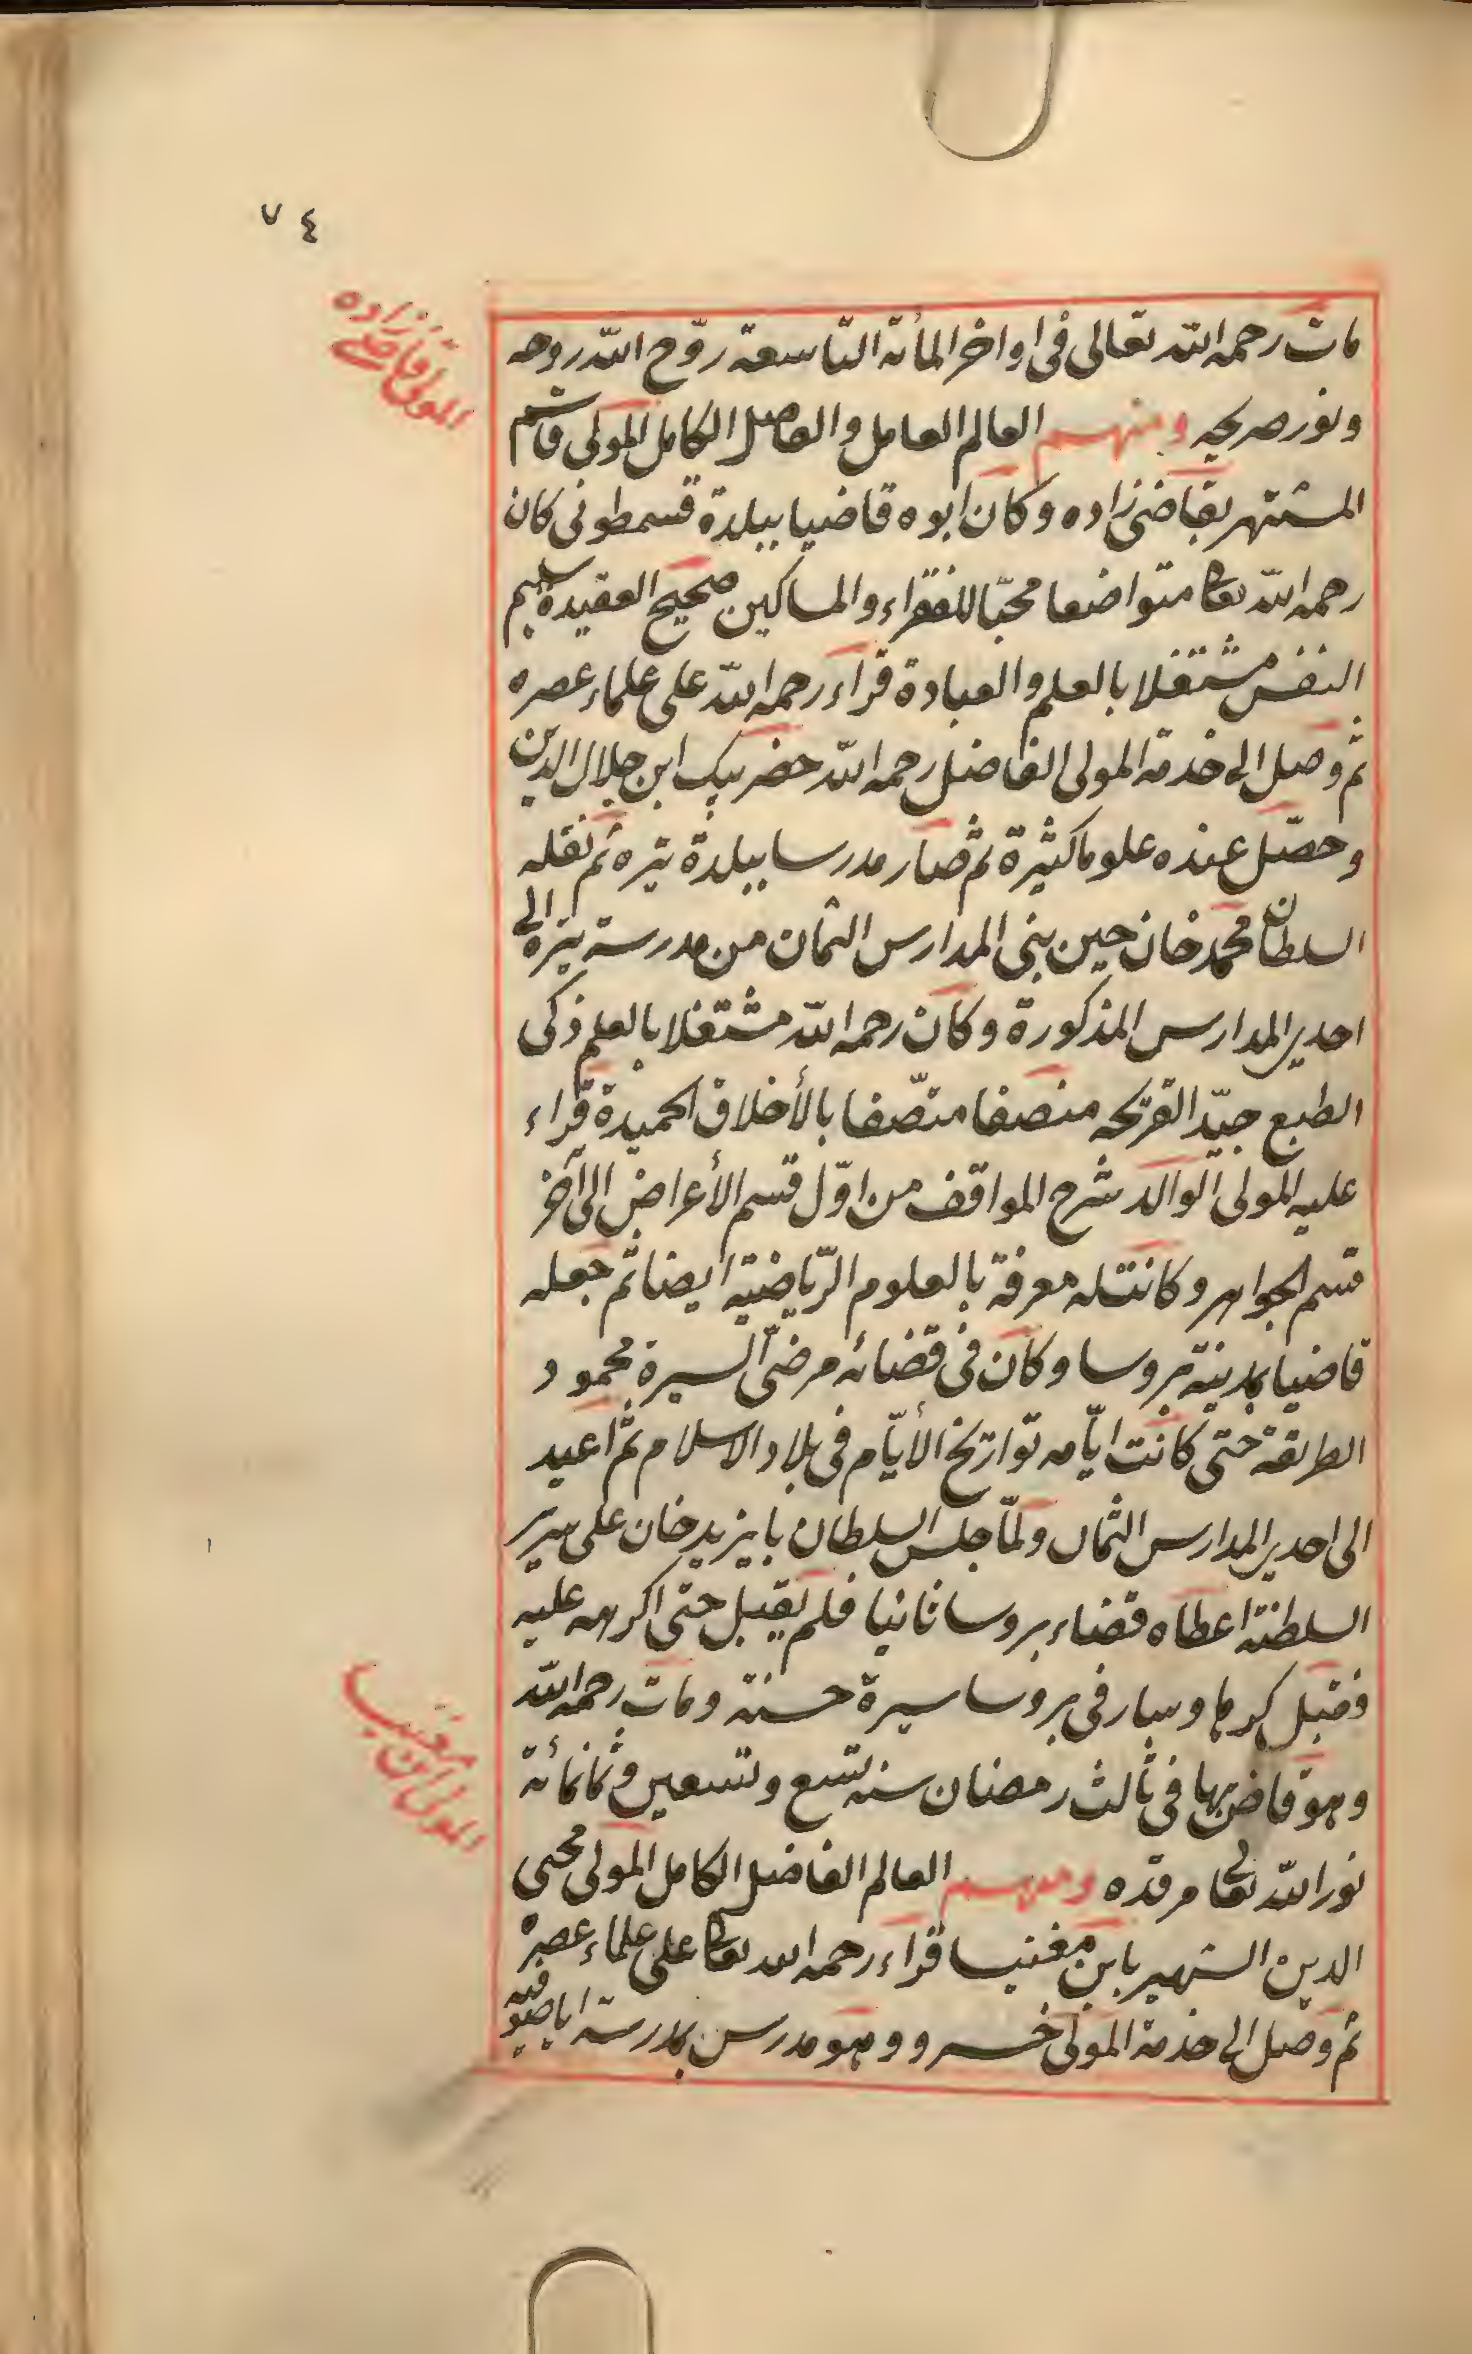 ٧٤
المولى قاضى زاده
مات رحمه الله تعالى فى اواخر المأتة التاسعة روّح الله روحه
ونور ضريحه ومنهم العالم العامل والفاضل الكامل المولى قاسم
المشتهر بقاضى زاده وكان ابوه قاضيا ببلدة قسمطونى كان
رحمه الله تعا متواضعا محبّا للفقراء والمساكين صحيح العقيدة سليم
النفس مشتغلا بالعلم والعبادة قراء رحمه الله على علماء عصره
ثم وصل الى خدمة المولى الفاضل رحمه الله حضر بيك ابن جلال الدين
وحصّل عنده علوما كثيرة ثم صار مدرسا ببلدة تيره ثم نقله
السلطان محمد خان حين بنى المدارس الثمان من مدرسة تيره الى
احدى المدارس المذكورة وكان رحمه الله مشتغلا بالعلم ذكى
الطبع جيّد القريحه منصفا متصّفا بالأخلاق الحميدة قراء
عليه المولى الوالد شرح المواقف من اوّل قسم الأعراض الى آخر
قسم الجواهر وكانت له معرفة بالعلوم الرّياضية ايضا ثم جعله
قاضيا بمدينة بروسا وكان فى قضائه مرضىّ السيرة محمود
الطريقة حتى كانت ايّامه تواريخ الأيّام فى بلاد الاسلام ثمّ اعيد
الى احدى المدارس الثمان ولمّا جلس السلطان بايزيد خان على سرير
السلطنة اعطاه قضاء بروسا ثانيا فلم يقبل حتى اكرهه عليه
فقبل كرها وسار فى بروسا سيرة حسنة ومات رحمه الله
وهو قاض بها فى ثالث رمضان سنه تسع وتسعين وثمانمأئة
المولى ابن مغنيسا
نور الله تعالى مرقده ومنهم العالم الفاضل الكامل المولى محيى
الدين الشهير بابن مغنيسا قراء رحمه الله تعا على علماء عصره
ثم وصل الى خدمة المولى خسرو وهو مدرس بمدرسة اياصوفيه